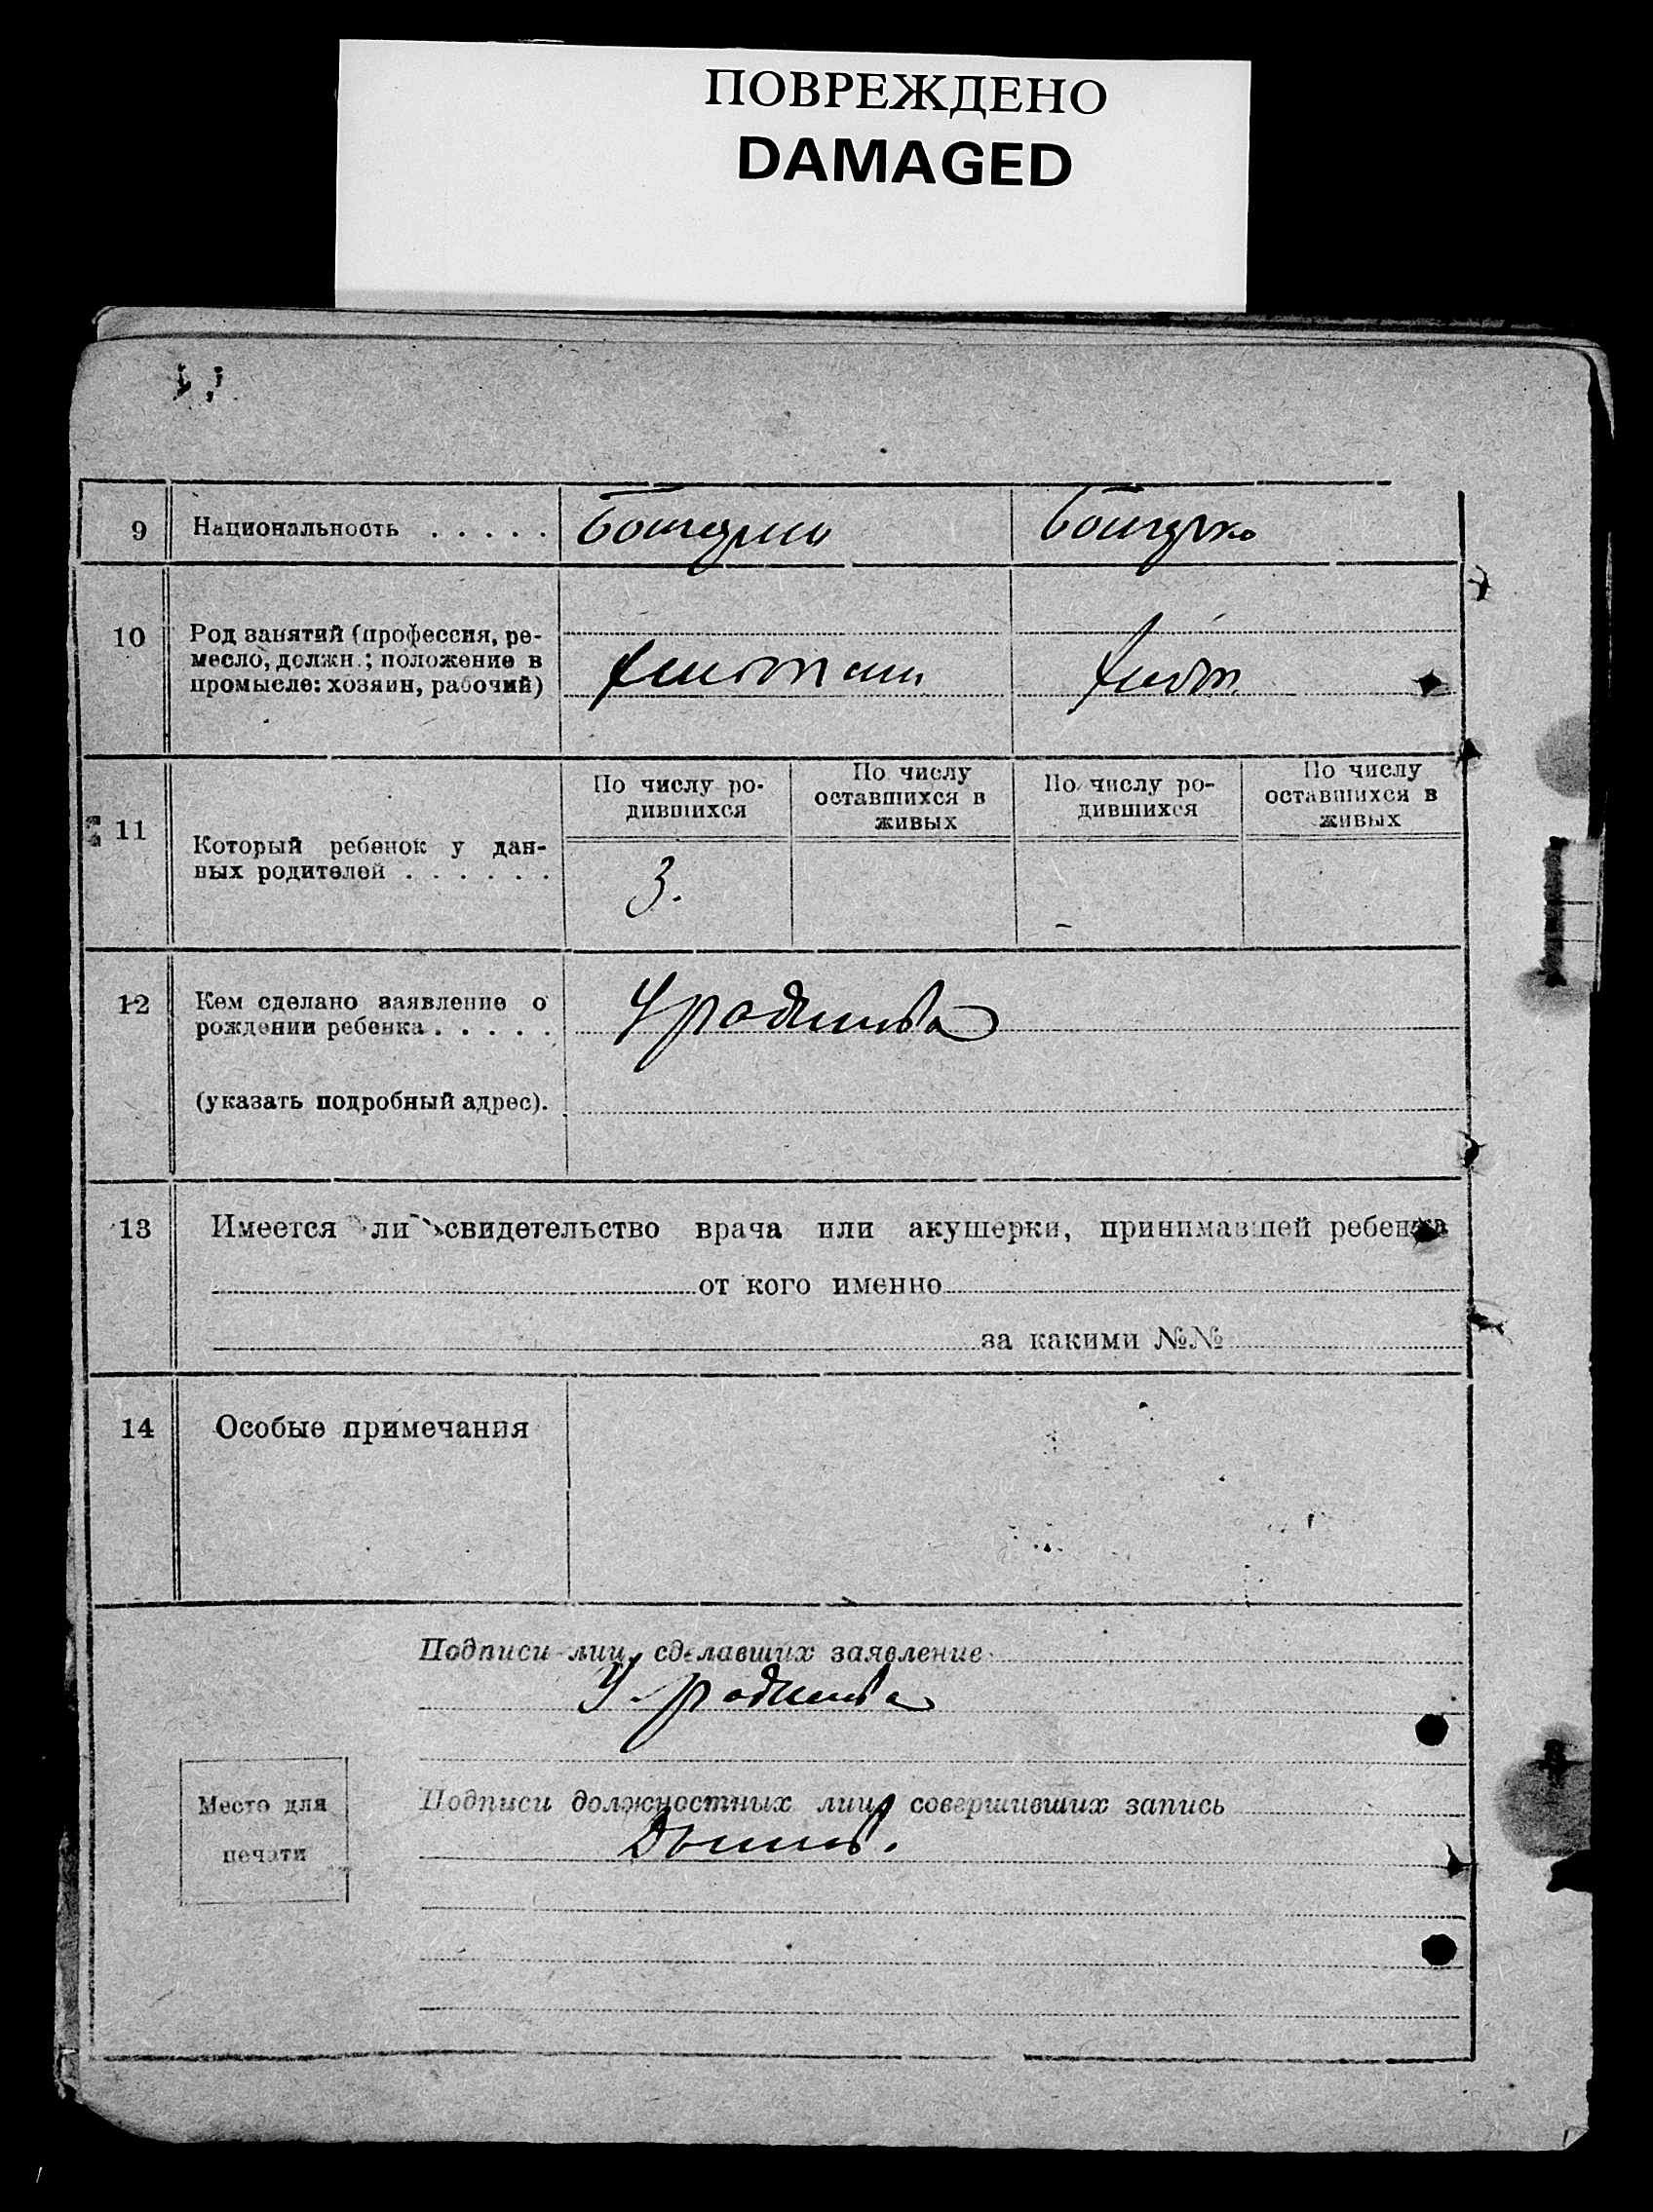 ПОВРЕЖДЕНО
DAMAGED
9 Национальность . . . . . Башкирин Башкирка
10 Род занятий (профессия, ре-
месло, должн.; положение в
промысле: хозяин, рабочий)
11 Который ребенок у дан-
ных родителей . . . . . .
По числу ро-
дившихся
По числу
оставшихся в
живых
По числу ро-
дившихся
По числу
оставшихся в
живых
3. -
12 Кем сделано заявление о
рождении ребенка . . . . .
(указать подробный адрес).
13 Имеется ли свидетельство врача или акушерки, принимавшей ребенка
от кого именно
за какими №№
14 Особые примечания
Подписи лиц, сделавших заявление
Место для
печати
Подписи должностных лиц, совершивших запись